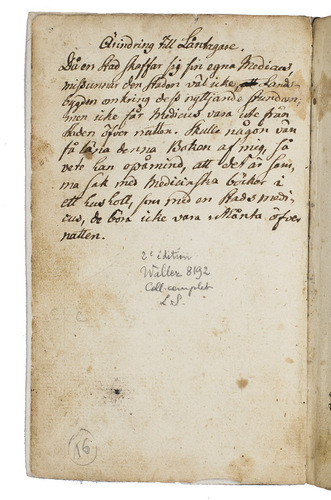 Erindring till Låntagare.
Då en Stad skaffar sig sin egna Medicus,
missunnar den Staden väl icke Landt-
bygden omkring dess nyttjande stundom
men icke får Medicus vara ute från
staden öfver natten. Skulle någon vän
få låna denna Boken af mig, så
vete han opåmind, att det är sam-
ma sak med Medicinska böcker i
ett hushåll, som med en Stads medi-
cus, de böra icke vara utlånta öfver
natten.
2e édition
Waller 8192
Coll. complet
L.S.
16